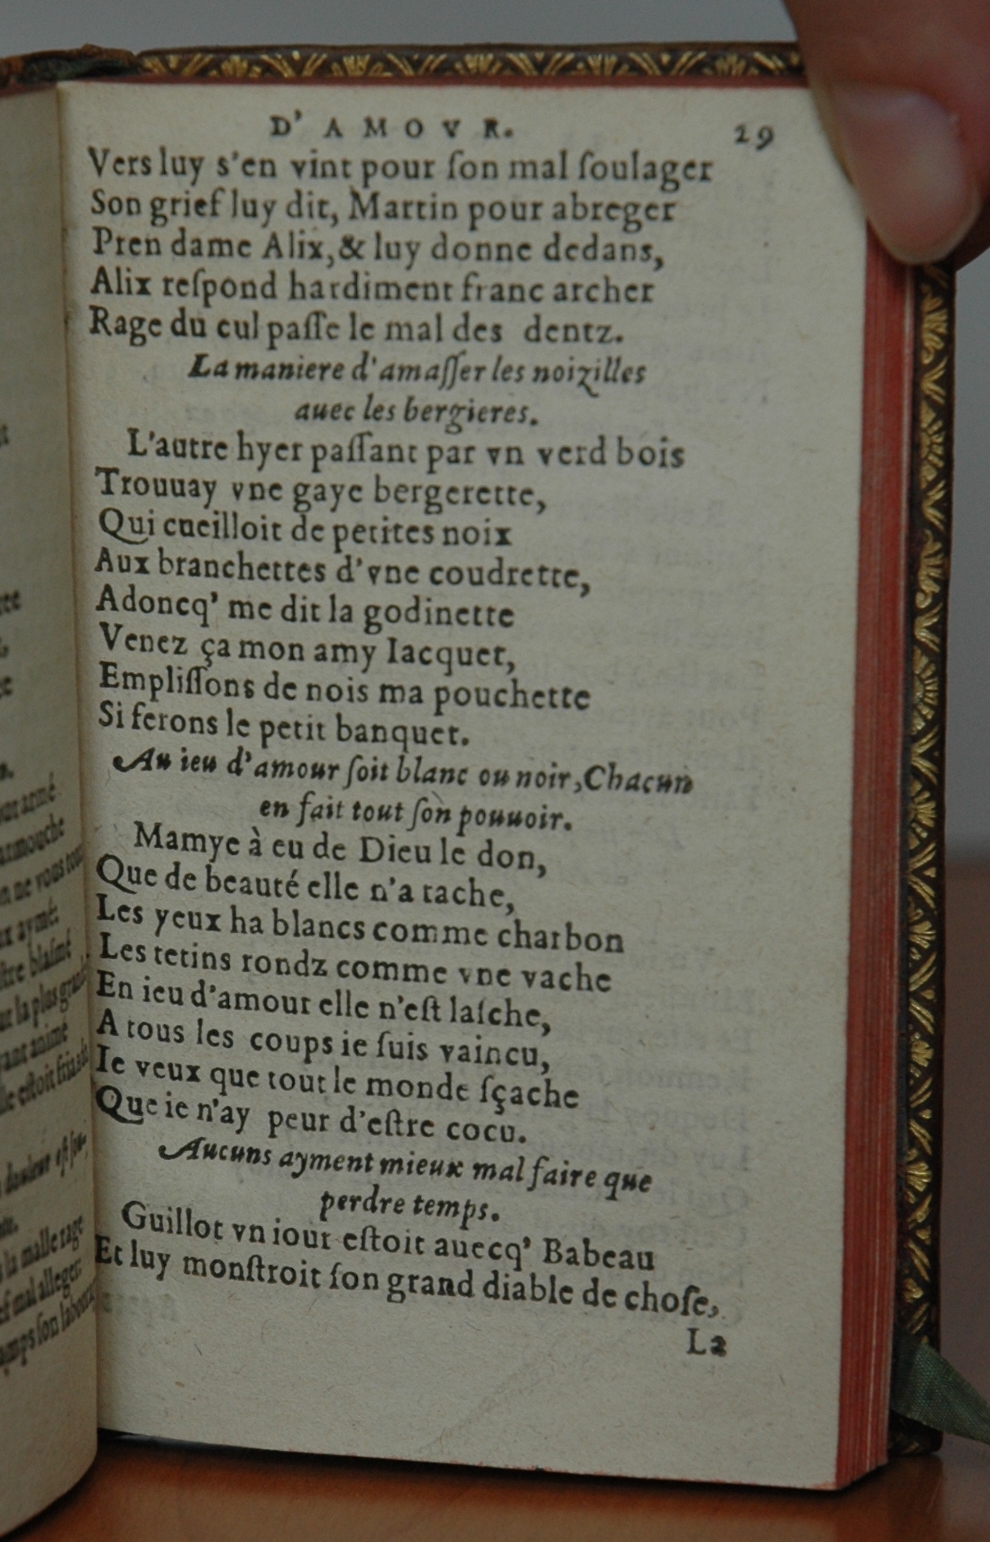 D' A M O V R. 29
Vers luy s'en vint pour ſon mal ſoulager
Son grief luy dit, Martin pour abreger
Pren dame Alix, & luy donne dedans,
Alix reſpond hardiment franc archer
Rage du cul paſſe le mal des dentz.
La maniere d'amaſſer les noizilles
auec les bergieres.
L'autre hyer paſſant par vn verd bois
Trouuay vne gaye bergerette,
Qui cueilloit de petites noix
Aux branchettes d'vne coudrette,
Adoncq' me dit la godinette
Venez ça mon amy Iacquet,
Empliſſons de nois ma pouchette
Si ferons le petit banquet.
Au ieu d'amour ſoit blanc ou noir, Chacun
en fait tout ſon pouuoir.
Mamye à eu de Dieu le don,
Que de beauté elle n'a tache,
Les yeux ha blancs comme charbon
Les tetins rondz comme vne vache
En ieu d'amour elle n'eſt laſche,
A tous les coups ie ſuis vaincu,
Ie veux que tout le monde ſçache
Que ie n'ay peur d'eſtre cocu.
Aucuns ayment mieux mal faire que
perdre temps.
Guillot vn iour eſtoit auecq' Babeau
Et luy monſtroit ſon grand diable de choſe,
La